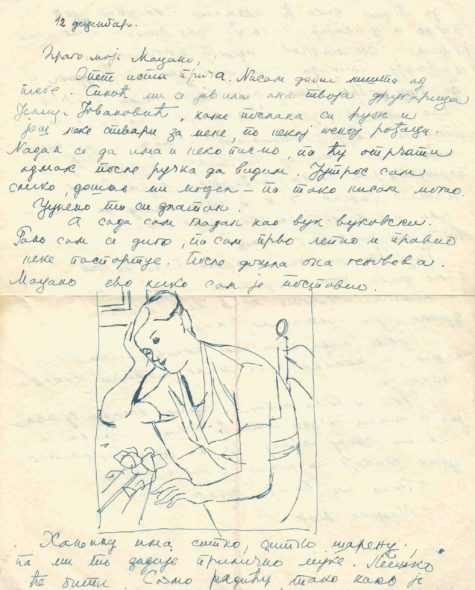 12 децембар.
Драго моје Мацано,
Опет иста прича. Нисам добио ништа од
тебе. Синоћ ми се јавила она твоја другарица
Јовановић, каже послала си руже и
још неке ствари за мене, по некој рођаци.
Надам се да има и неко писмо, па ћу отрчати
одмах после ручка да видим. Јутрос сам
слико, дошао ми модел – па тако нисам могао
ти си златан.
А сада сам гладан као вук вуковски.
Рано сам се диго, па сам прво лепио и правио
неке . После дошла ова .
Мацано ево како сам је поставио.
Хаљину има, ситно, ситно шарену,
па ми то задаје прилично муке. Лепо
ће бити само радићу тако како је